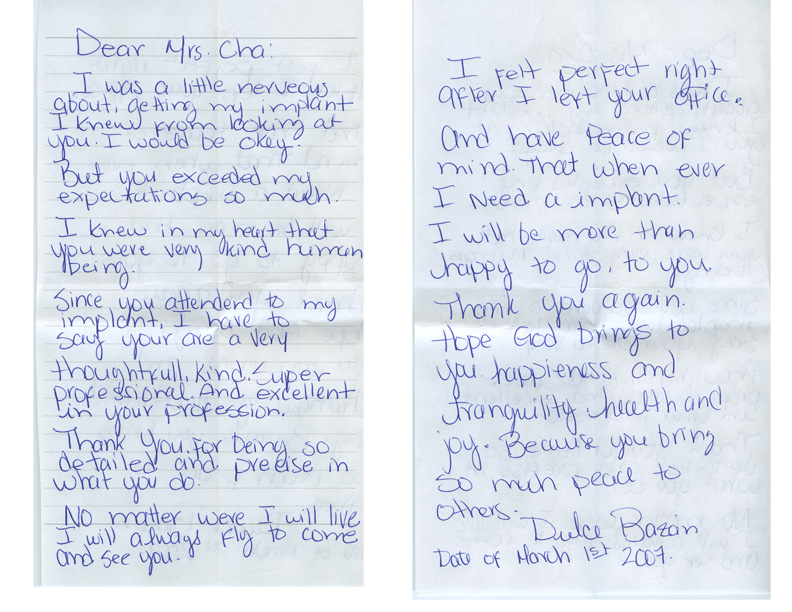 Dear Mrs. Cha:
I was a little nerveous
about, getting my implant
I knew from looking at
you. I would be okey.
But you exceeded my
expectations so much.
I knew in my heart that
you were very kind human
being.
Since you attenderd to my
implant, I have to
say your are a very
thoughtfull, kind. Super
professional. And excellent
in your profession.
Thank you. for being so
detailed and precise in
what you do.
No matter were I will live
I will always fly to come
and see you.
I felt perfect right
after I left your office.
and have Peace of
mind. That when ever
I Need a implant.
I will be more than
happy to go, to you.
Thank you again.
Hope God brings to
you happieness and
tranquility health and
joy. Because you bring
so much peace to
others.
Dulce Bazan
Date of March 1st 2007.